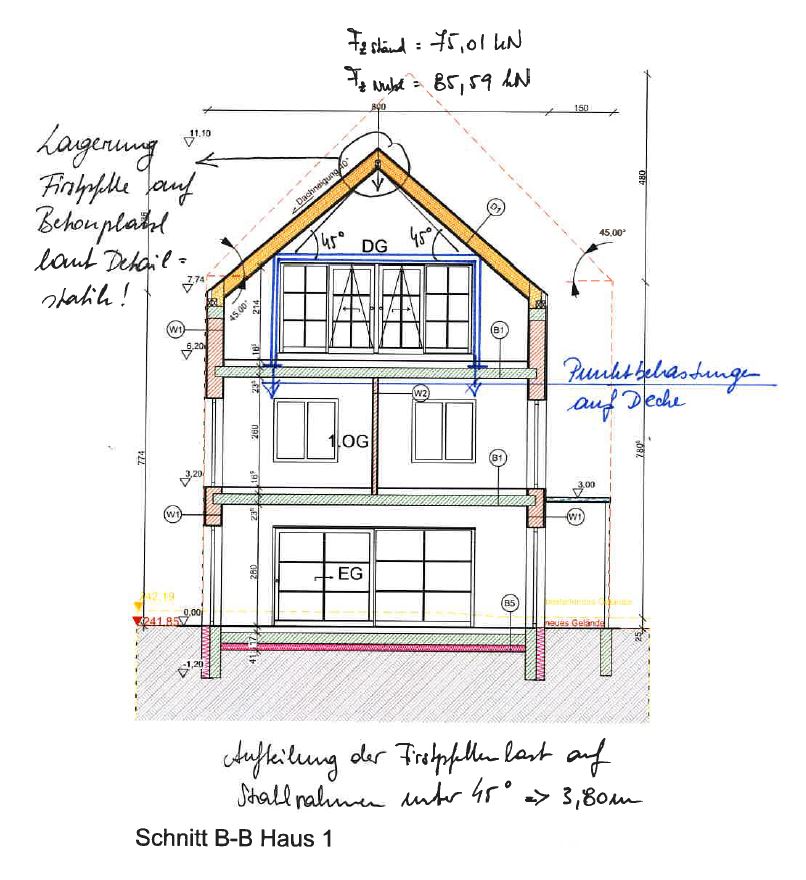 Fz ständ = 75,01 kN
Fz Nutzl = 85,59 kN
800
150
11,10
Lagerung
Firstpfette auf
Betonplatte
laut Detail=
statik!
Dachneigung 40°
480
D1
45°
DG
45°
45,00°
7,74
45,00°
214
W1
B1
6,20
16⁵
Punktbelastungen
auf Decke
23⁵
W2
260
1.OG
774
780⁵
B1
3,20
16⁵
3,00
W1
23⁵
W1
280
EG
242.19
B5
bestehendes Gelände
0,00
241.85
neues Gelände
41
17
25
-1,20
Aufteilung der Firstpfettenlast auf
Stahlrahmen unter 45° => 3,80m
Schnitt B-B Haus 1